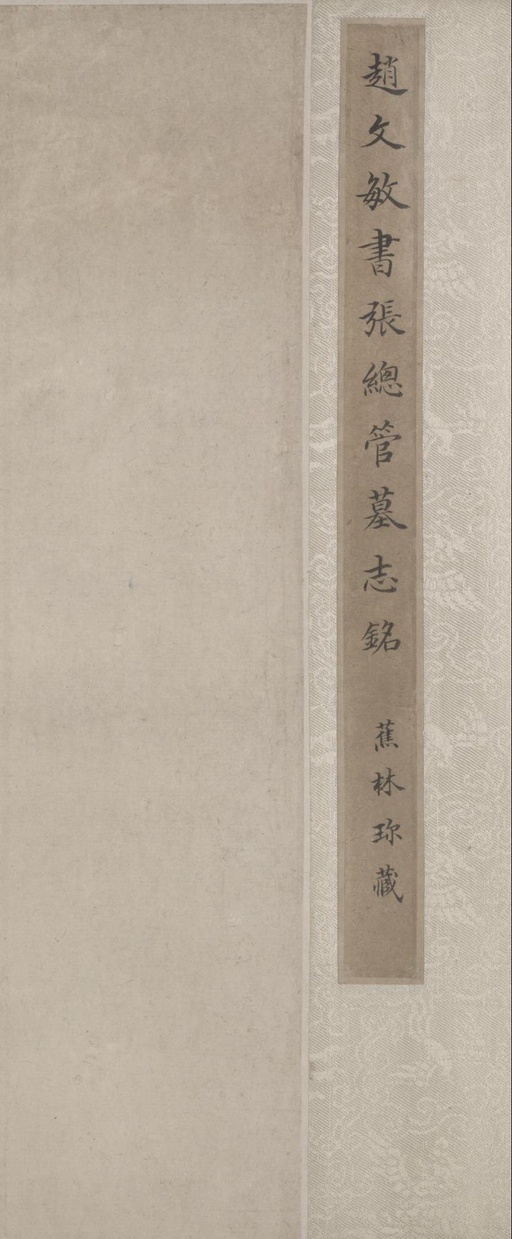 趙文敏書張總管墓志銘 蕉林珎藏